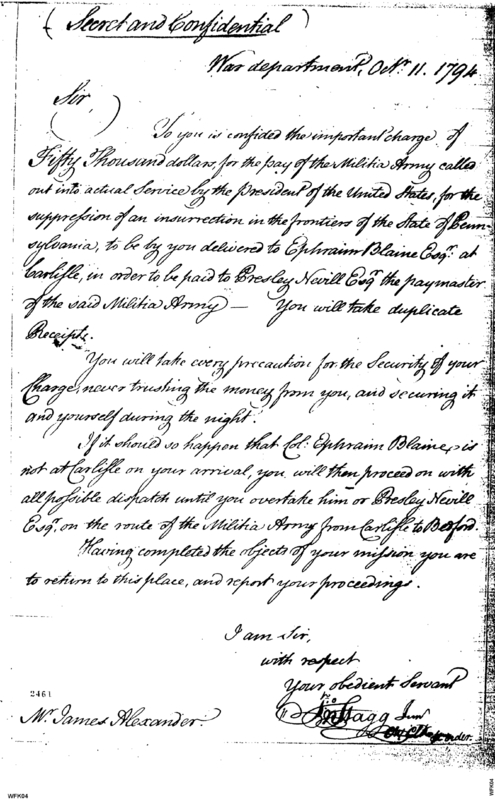 (Secret and Confidential)
War department, Octr. 11. 1794
Sir,
To you is confided the important charge of
Fifty Thousand dollars, for the pay of the Militia Army called
out into actual Service by the President of the United States, for the
suppression of an insurrection in the frontiers of the State of Penn-
sylvania, to be by you delivered to Ephraim Blaine Esqr. at
Carlisle, in order to be paid to Presley Nevill Esqr. the paymaster
of the said Militia Army — You will take duplicate
Receipts.
You will take every precaution for the Security of your
Charge, never trusting the money from you, and securing it
and yourself during the night.
If it should so happen that Col: Ephraim Blaine, is
not at Carlisle on your arrival, you will then proceed on with
all possible dispatch until you overtake him or Presley Nevill
Esqr. on the route of the Militia Army from Carlisle to Bedford.
Having completed the objects of your mission you are
to return to this place, and report your proceedings.
I am Sir,
with respect
Your obedient Servant
Jno Stagg Junr
2461
Mr. James Alexander.
WFK04
WFK04